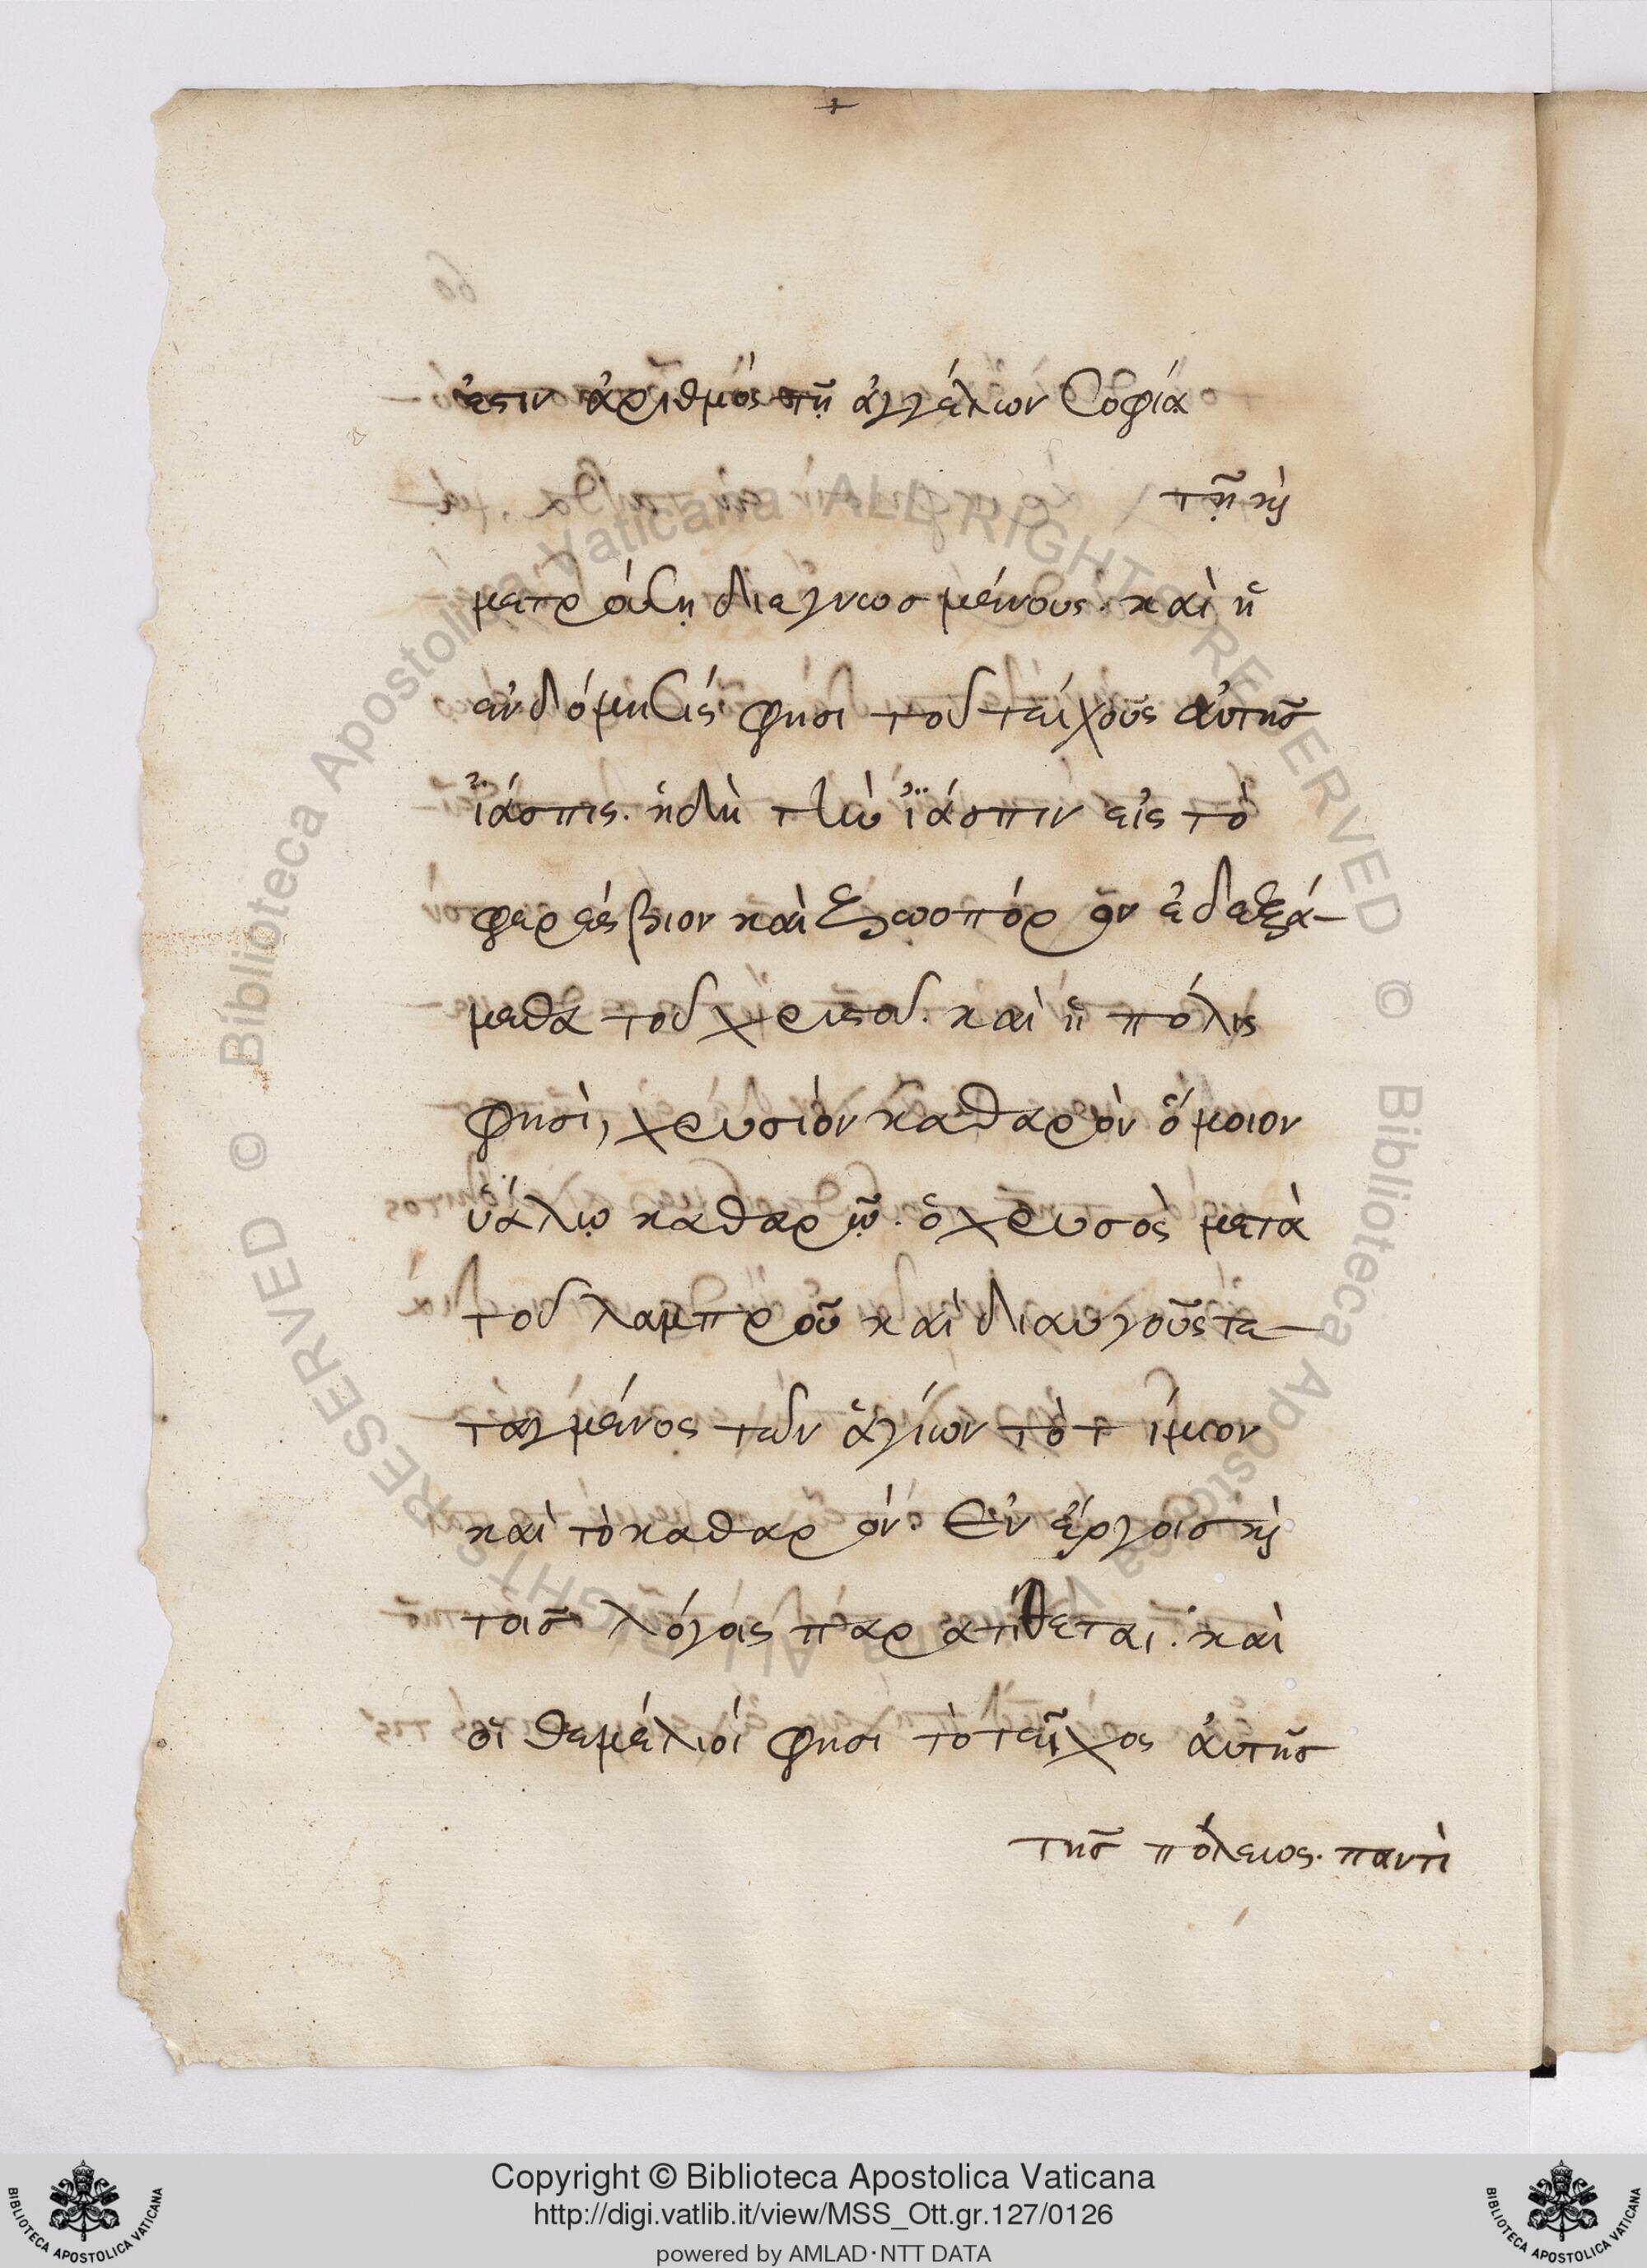 +
ἐστὶν ἀριθμός τῇ ἀγγέλων σοφίᾳ
τῇ καὶ
μετράσῃ διεγνωσμένους. καὶ ἡ
ἐνδόμησίς φησι τοῦ τείχους αὐτῆς
ἴασπις. ἤδη τὴν ἴασπιν εἰς τὸ
φερέσβιον καὶ ζωοπόρον ἐδεξά-
μεθα τοῦ χριστοῦ. καὶ ἡ πόλις
φησὶ, χρυσίον καθαρὸν ὅμοιον
ὑάλῳ καθαρῷ. ὁ χρυσὸς μετὰ
τοῦ λαμπροῦ καὶ διαυγοῦς τε-
ταγμένος τῶν ἁγίων τὸ τίμιον
καὶ τὸ καθαρόν. ἐν ἔργοις καὶ
τοῖς λόγοις παρατίθεται. καὶ
οἱ θεμέλιοί φησι τὸ τεῖχος αὐτῆς
τῆς πόλεως. παντὶ
Copyright © Biblioteca Apostolica Vaticana
http://digi.vatlib.it/view/MSS_Ott.gr.127/0126
powered by AMLAD·NTT DATA
© Biblioteca Apostolica Vaticana ALL RIGHTS RESERVED
© Biblioteca Apostolica Vaticana ALL RIGHTS RESERVED
BIBLIOTECA APOSTOLICA VATICANA
BIBLIOTECA APOSTOLICA VATICANA